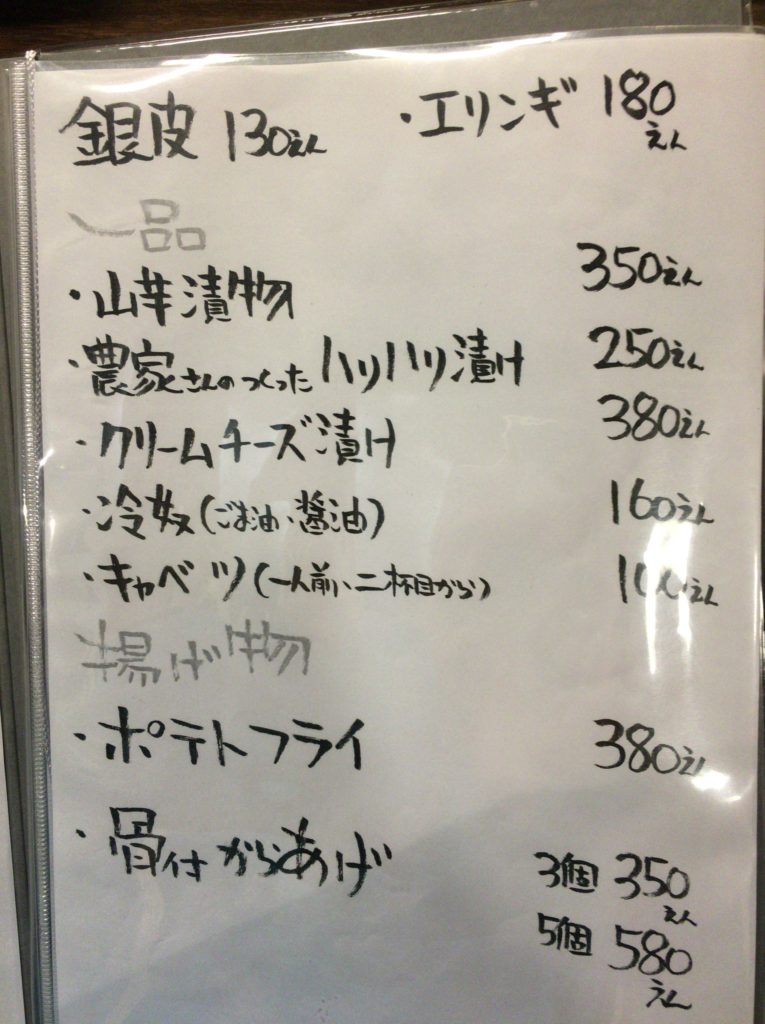 銀皮 130えん ・エリンギ 180えん
一品
・山芋漬物 350えん
・農家さんのつくったハリハリ漬け 250えん
・クリームチーズ漬け 380えん
・冷奴(ごま油・醤油) 160えん
・キャベツ(一人前、二杯目から) 100えん
揚げ物
・ポテトフライ 380えん
・骨付からあげ 3個 350えん
5個 580えん